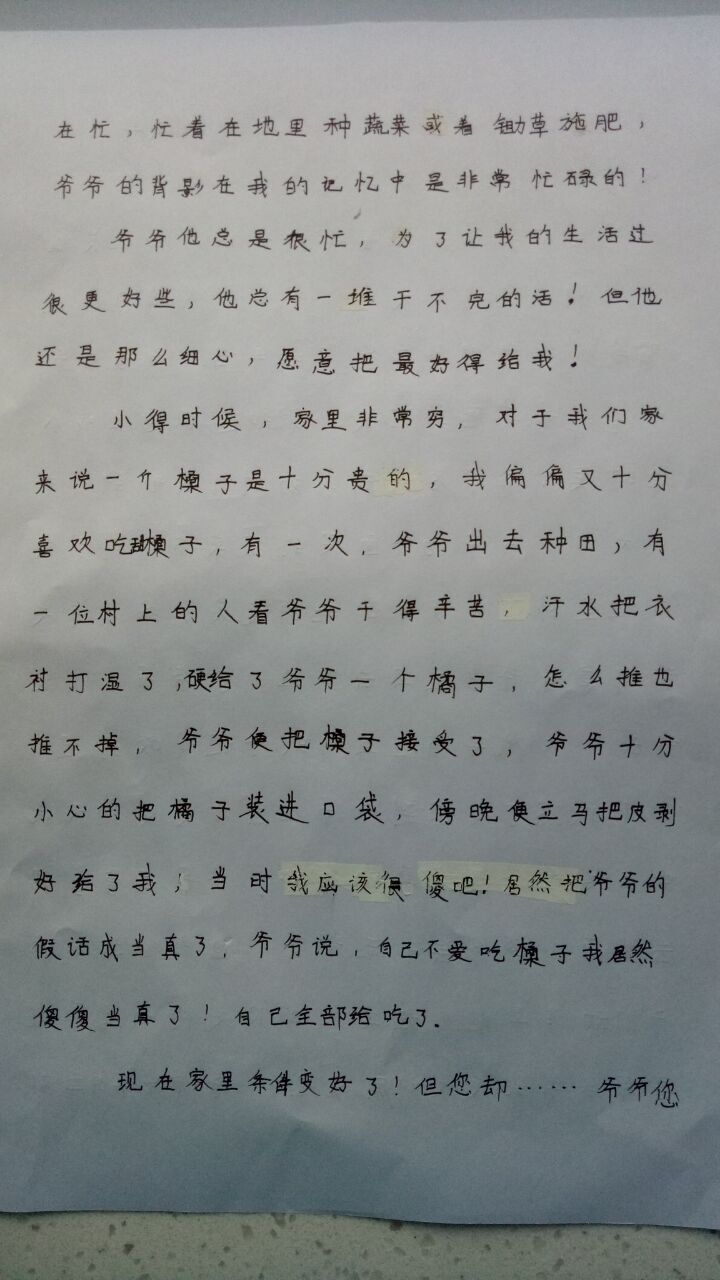 在忙，忙着在地里种蔬菜或着锄草施肥，
爷爷的背影在我的记忆中是非常忙碌的！
爷爷他总是很忙，为了让我的生活过
很更好些，他总有一堆干不完的活！但他
还是那么细心，愿意把最好得给我！
小得时候，家里非常穷，对于我们家
来说一个橾子是十分贵的，我偏偏又十分
喜欢吃橾子，有一次，爷爷出去种田，有
一位村上的人看爷爷干得辛苦，汗水把衣
衬打湿了，硬给了爷爷一个橘子，怎么推也
推不掉，爷爷便把橾子接受了，爷爷十分
小心的把橘子装进口袋，傍晚便立马把皮剥
好给了我，当时我应该很傻吧！居然把爷爷的
假话成当真了，爷爷说，自己不爱吃橾子我居然
傻傻当真了！自己全部给吃了。
现在家里条件变好了！但您却……爷爷您